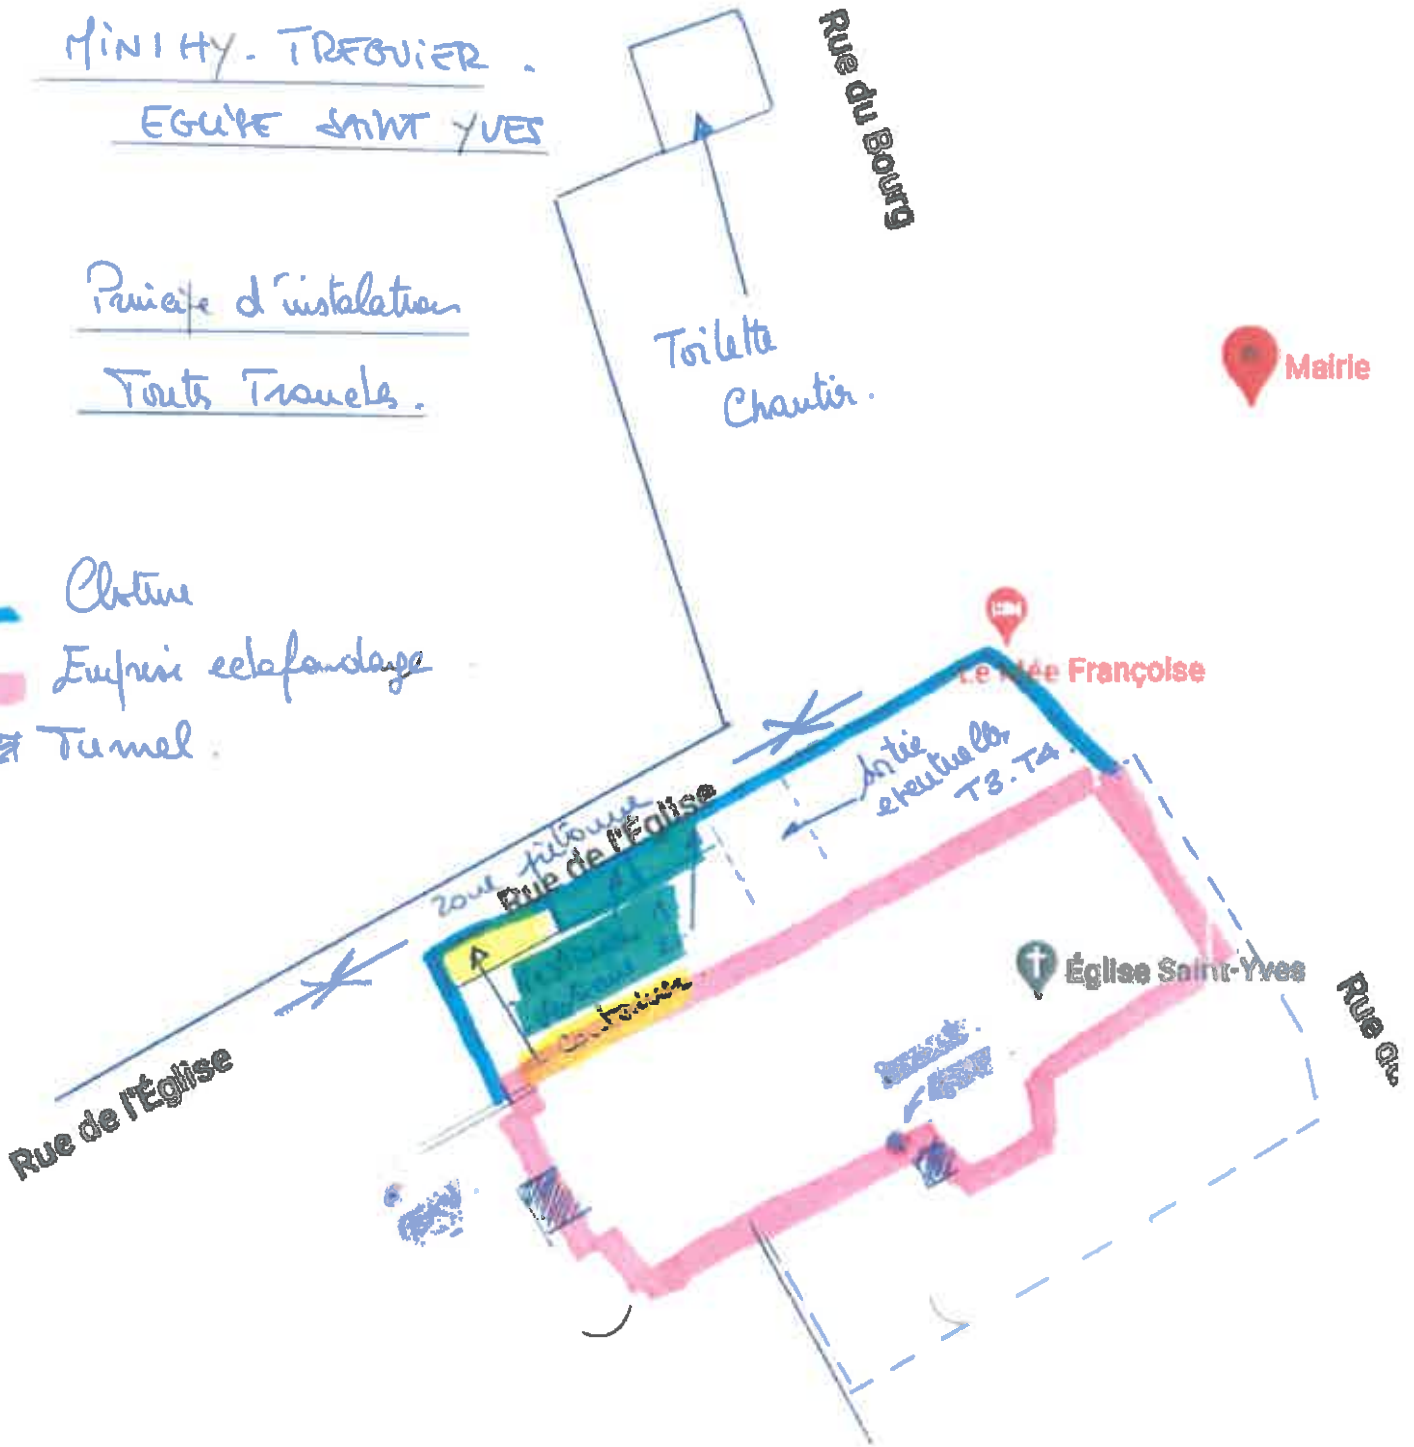 MINIHY. TREGUIER.
EGLISE SAINT YVES
Rue du Bourg
Principe d'instalation
Toutes Tranches.
Toilette
Chantier.
Mairie
Cloture
Emprise echafaudage
Tunnel.
Le Mée Françoise
Sortie
eventuelle
T3.T4.
zone pietonne
Rue de l'Église
Église Saint-Yves
Rue de l'Église
Rue